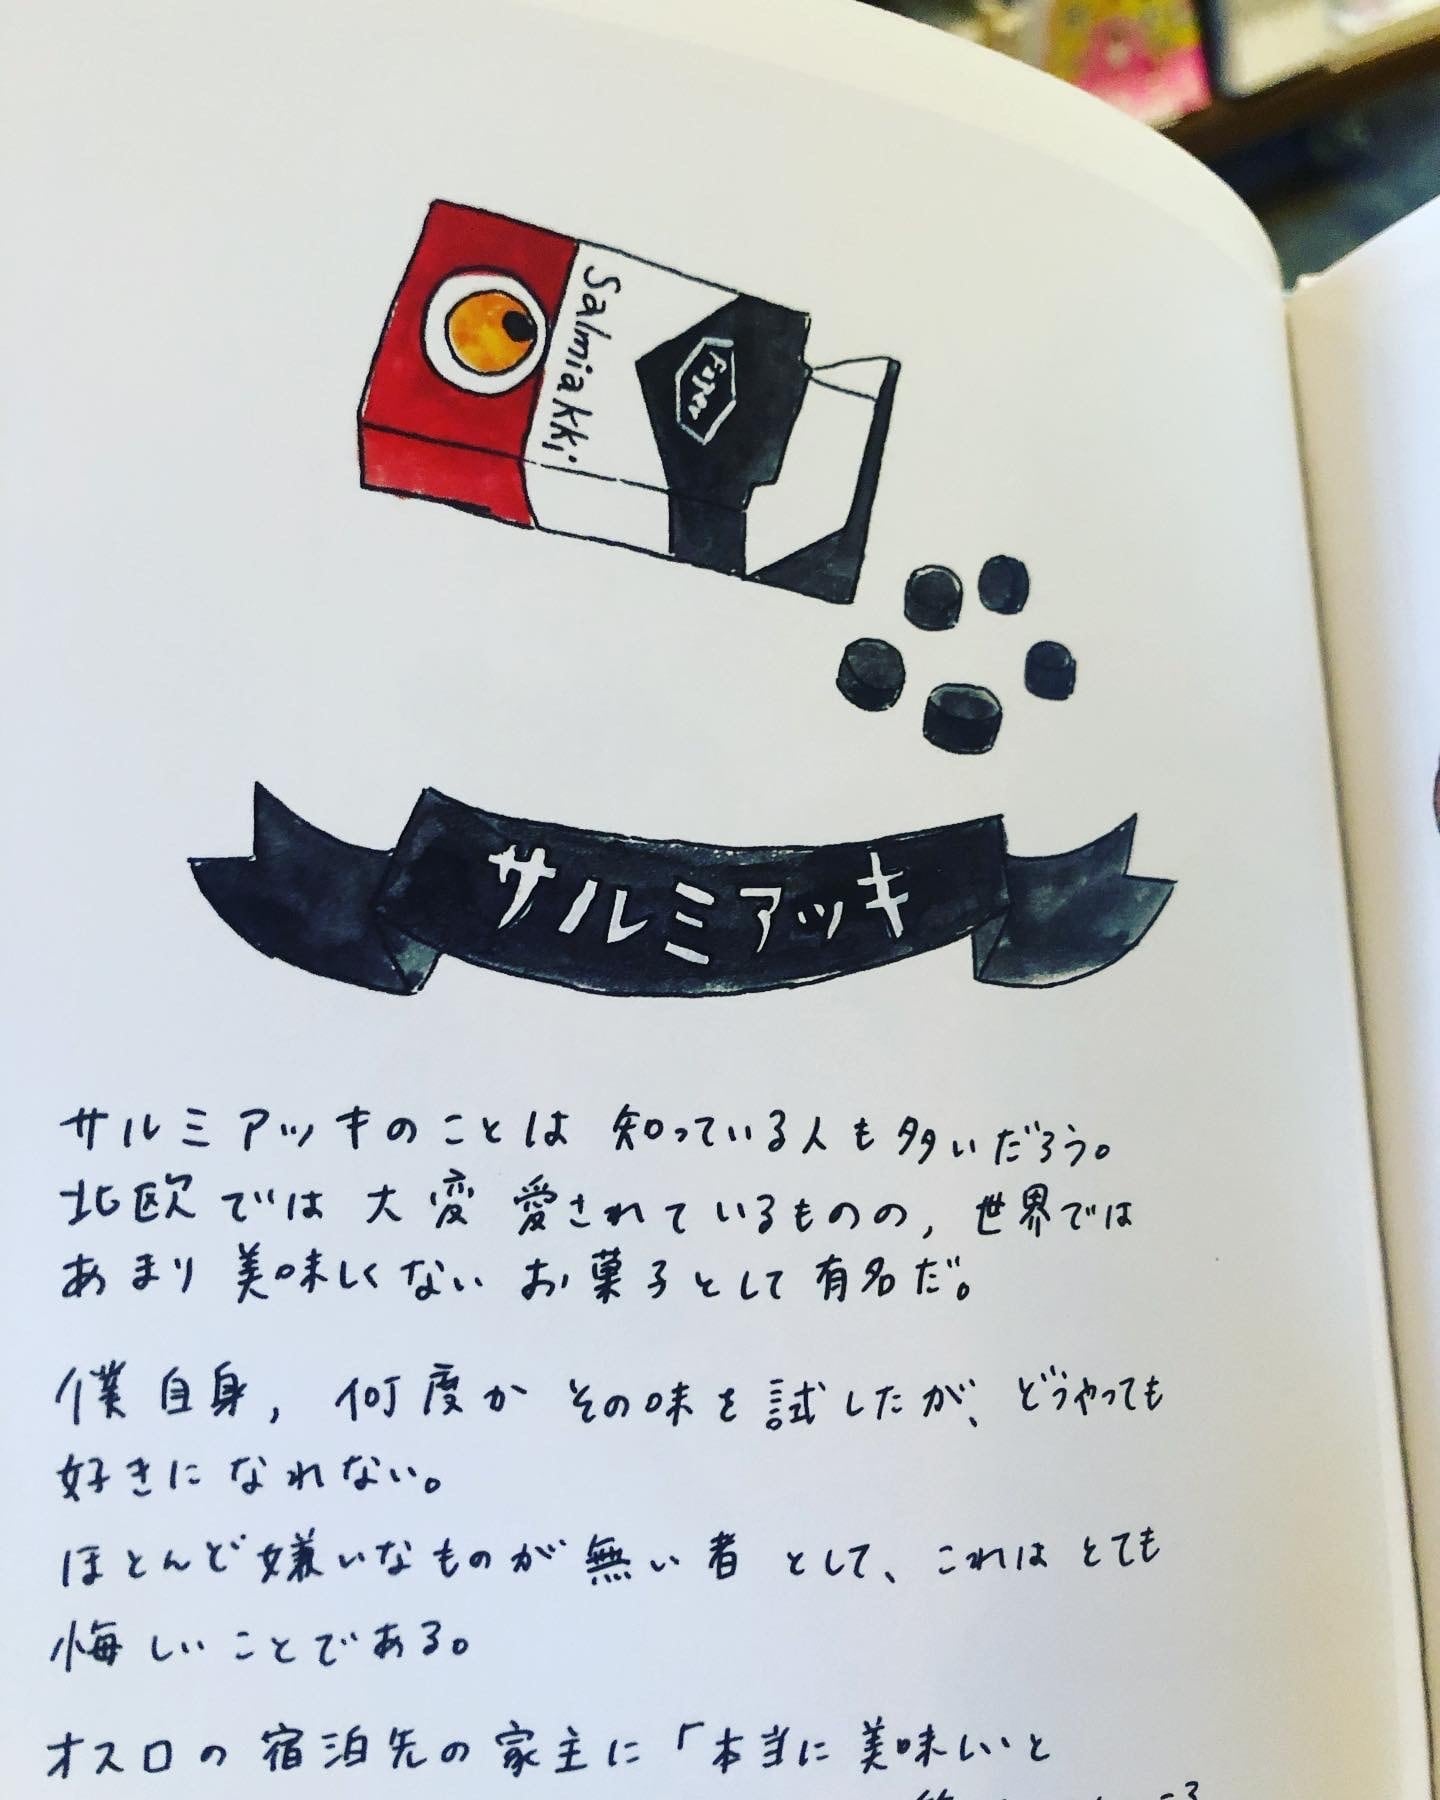 Salmiakki
Fazer
サルミアッキ
サルミアッキのことは 知っている人も多いだろう。
北欧では 大変 愛されているものの, 世界では
あまり 美味しくない お菓子として有名だ。
僕自身, 何度か その味を試したが、どうやっても
好きになれない。
ほとんど嫌いなものが無い者 として、これは とても
悔しいことである。
オスロの宿泊先の家主に「本当に美味しいと